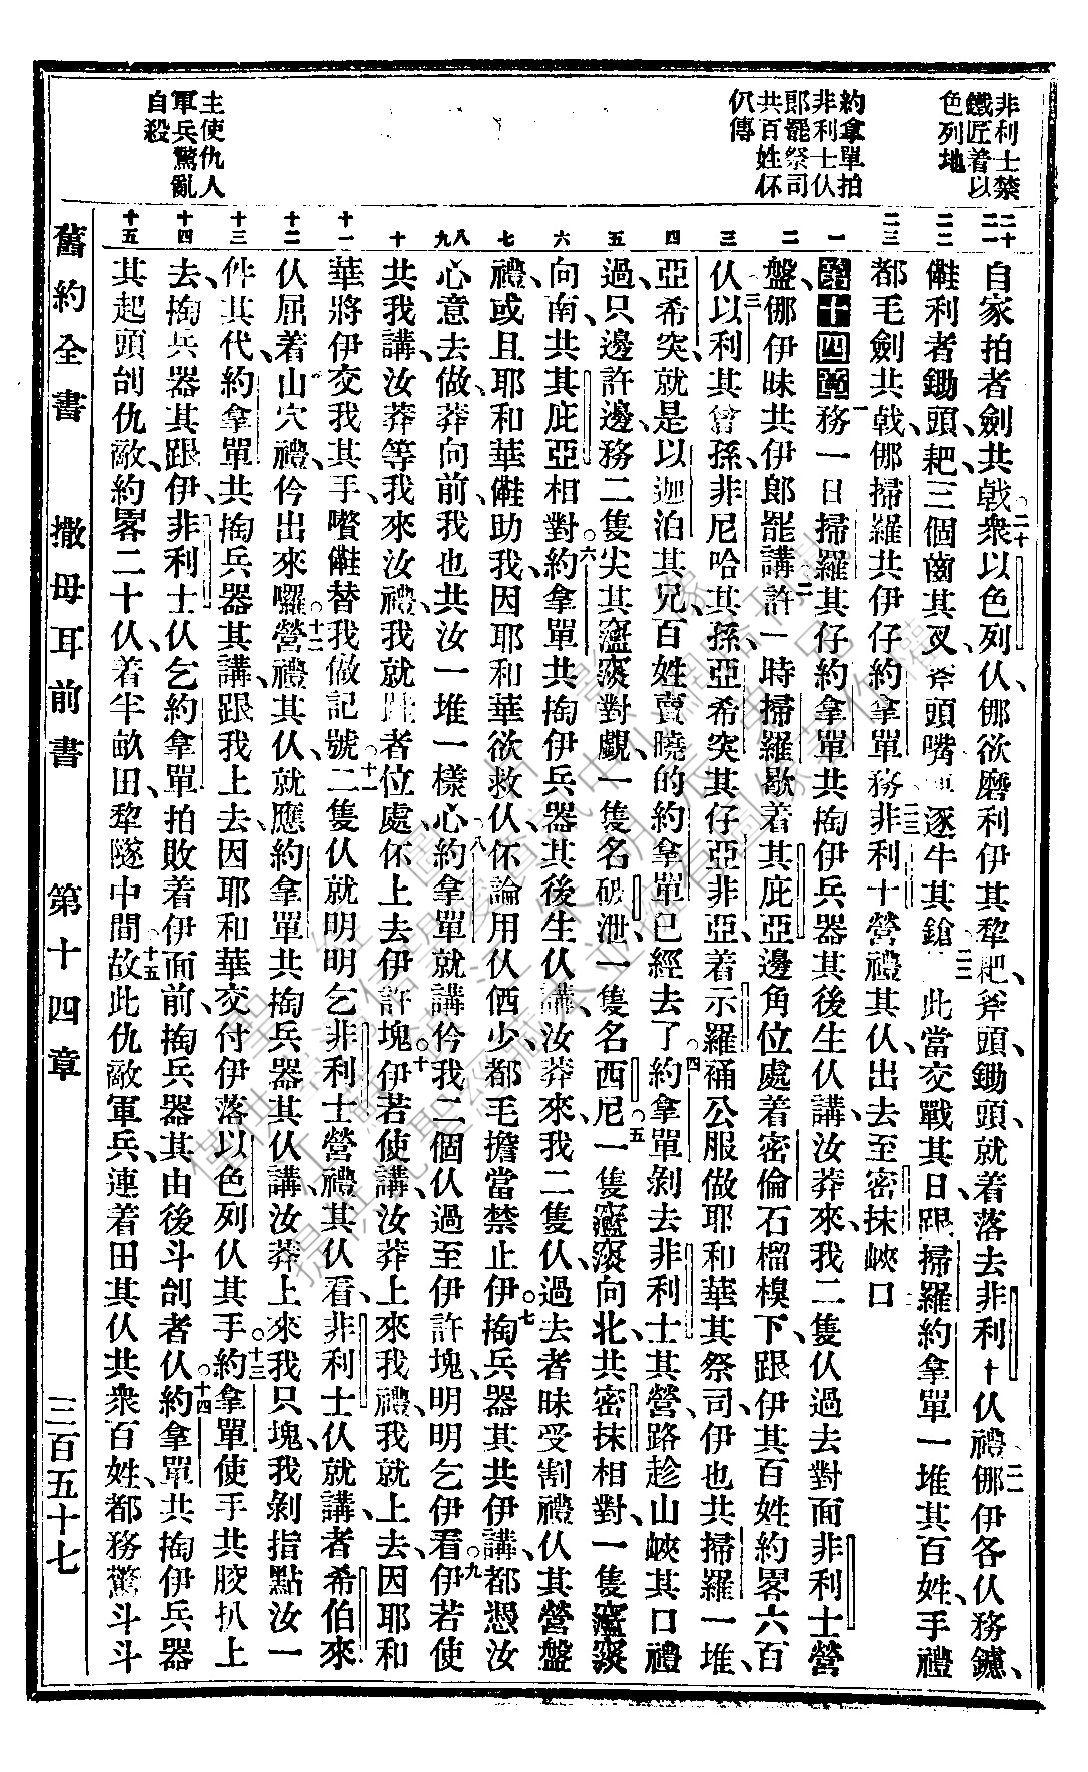 非利士禁
鐵匠着以
色列地
約拿單拍
非利士仈
郎罷祭司
共百姓伓
仈傳
主使仇人
軍兵驚亂
自殺
二十
二一
二二
二三
一
二
三
四
五
六
七
八
九
十
十一
十二
十三
十四
十五
自家拍者劍共戟衆以色列仈、㑚欲磨利伊其犂耙、斧頭、鋤頭、就着落去非利士仈禮㑚伊各仈務鐻、
㒠利者鋤頭、耙、三個齒其叉、斧頭嘴逐牛其鎗此當交戰其日、跟掃羅約拿單一堆其百姓、手禮
都毛劍共戟、㑚掃羅共伊仔約拿單務、非利士營禮其仈、出去至密抹峽口
第十四章務一日掃羅其仔約拿單、共掏伊兵器其後生仈講、汝莽來、我二隻仈過去對面非利士營
盤、㑚伊昧共伊郎罷講許一時掃羅歇着其庇亞邊角位處、着密倫石榴模下、跟伊其百姓約畧六百
仈、以利其曾孫、非尼哈其孫、亞希突其仔亞非亞、着示羅補公服、做耶和華其祭司、伊也共掃羅一堆、
亞希突就是以迦泊其兄、百姓賣曉的約拿單已經去了約拿單剝去非利士其營、路趁山峽其口禮
過、只邊許邊、務二隻尖其窿窱對覷、一隻名砸泄、一隻名西尼一隻窿窱向北、共密抹相對、一隻窿窱
向南、共其庇亞相對約拿單共掏伊兵器其後生仈講、汝莽來、我二隻仈、過去者昧受割禮仈其營盤
禮、或且耶和華㒠助我、因耶和華欲救仈、伓論用仈価少、都毛擔當禁止伊掏兵器其共伊講、都憑汝
心意去做、莽向前、我也共汝一堆一樣心約拿單就講、仱我二個仈過至伊許塊、明明乞伊看伊若使
共我講、汝莽等、我來汝禮、我就踵者位處、伓上去伊許塊伊若使講、汝莽上來我禮、我就上去、因耶和
華將伊交我其手、嘴㒠替我做記號二隻仈就明明乞非利士營禮其仈看、非利士仈就講、者希伯來
仈屈着山穴禮、仱出來囉營禮其仈、就應約拿單共掏兵器其仈講、汝莽上來、我只塊、我剝指點汝一
件其代、約拿單共掏兵器其講、跟我上去、因耶和華交付伊落以色列仈其手約拿單使手共骹扒上
去、掏兵器其跟伊、非利士仈乞約拿單拍敗着伊面前、掏兵器其由後斗刣者仈約拿單共掏伊兵器
其起頭刣仇敵、約畧二十仈、着半畝田、犂隧中間故此仇敵軍兵、連着田其仈共衆百姓、都務驚斗斗
舊約全書　撒母耳前書　第十四章　三百五十七